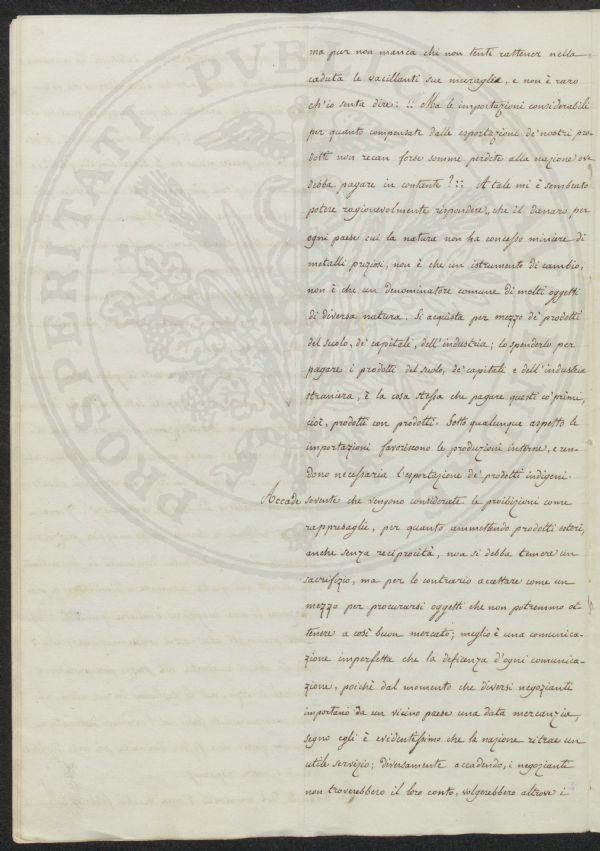 ma pur non manca chi non tenti rattener nella
caduta le vacillanti sue muraglie, e non è raro
ch'io senta dire: :: Ma le importazioni considerabili
per quanto compensate dalle esportazioni de' nostri pro-
dotti non recan forse somme perdite alla nazione ove
debba pagare in contante? :: A tale mi è sembrato
potere ragionevolmente rispondere, che il danaro per
ogni paese cui la natura non ha concesso miniere di
metalli preziosi, non è che un istrumento di cambio,
non è che un denominatore comune di molti oggetti
di diversa natura. Si acquista per mezzo de' prodotti
del suolo, de' capitali, dell'industria; lo spenderlo per
pagare i prodotti del suolo, de' capitali e dell'industria
straniera, è la cosa stessa che pagare questi co' primi,
cioè, prodotti con prodotti. Sotto qualunque aspetto le
importazioni favoriscono le produzioni interne, e ren-
dono necessaria l'esportazione de' prodotti indigeni.
Accade sovente che vengono considerate le proibizioni come
rappresaglie, per quanto ammettendo prodotti esteri,
anche senza reciprocità, non si debba temere un
sacrifizio, ma per lo contrario accettare come un
mezzo per procurarsi oggetti che non potremmo ot-
tenere a così buon mercato; meglio è una comunica-
zione imperfetta che la deficenza d'ogni comunica-
zione, poichè dal momento che diversi negozianti
importano da un vicino paese una data mercanzia,
segno egli è evidentissimo che la nazione ritrae un
utile servizio; diversamente accadendo, i negozianti
non troverebbero il loro conto, volgerebbero altrove i
PROSPERITATI PUBLICAE